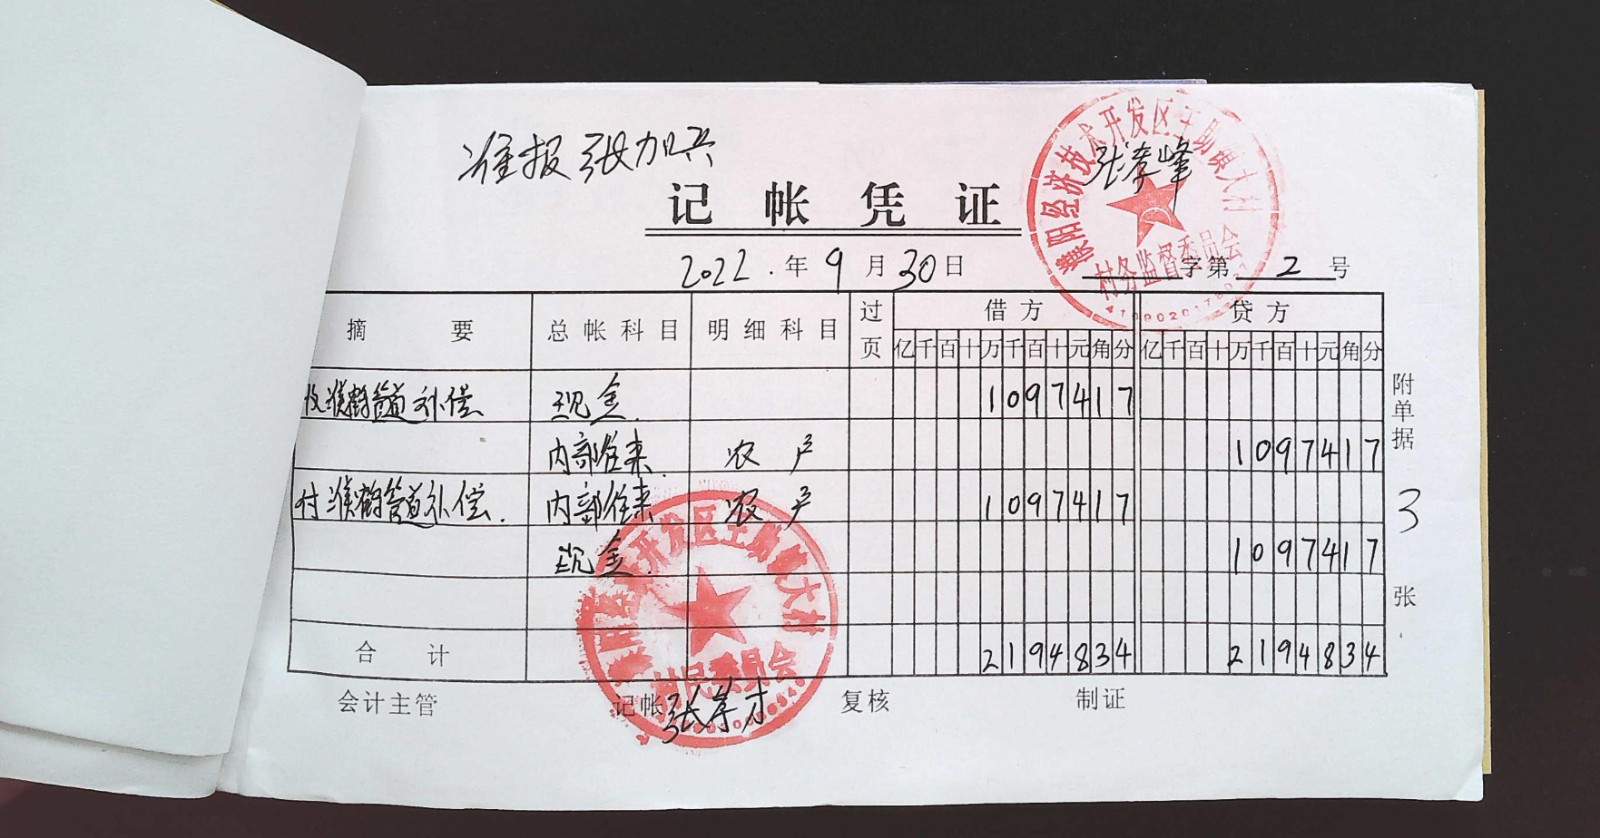 准报张加兴
张孝峰
记帐凭证
2022.年9月30日
字第2号
濮阳经济技术开发区王助镇大村
村务监督委员会
摘要 总帐科目 明细科目 过页 借方 贷方
亿千百十万千百十元角分 亿千百十万千百十元角分
收濮鹤管道补偿 现金. 1097417
内部往来. 农户 1097417
付濮鹤管道补偿. 内部往来 农户 1097417
现金. 1097417
合计 2194834 2194834
附单据3张
开发区王助镇大村
村民委员会
会计主管 记帐 张 复核 制证